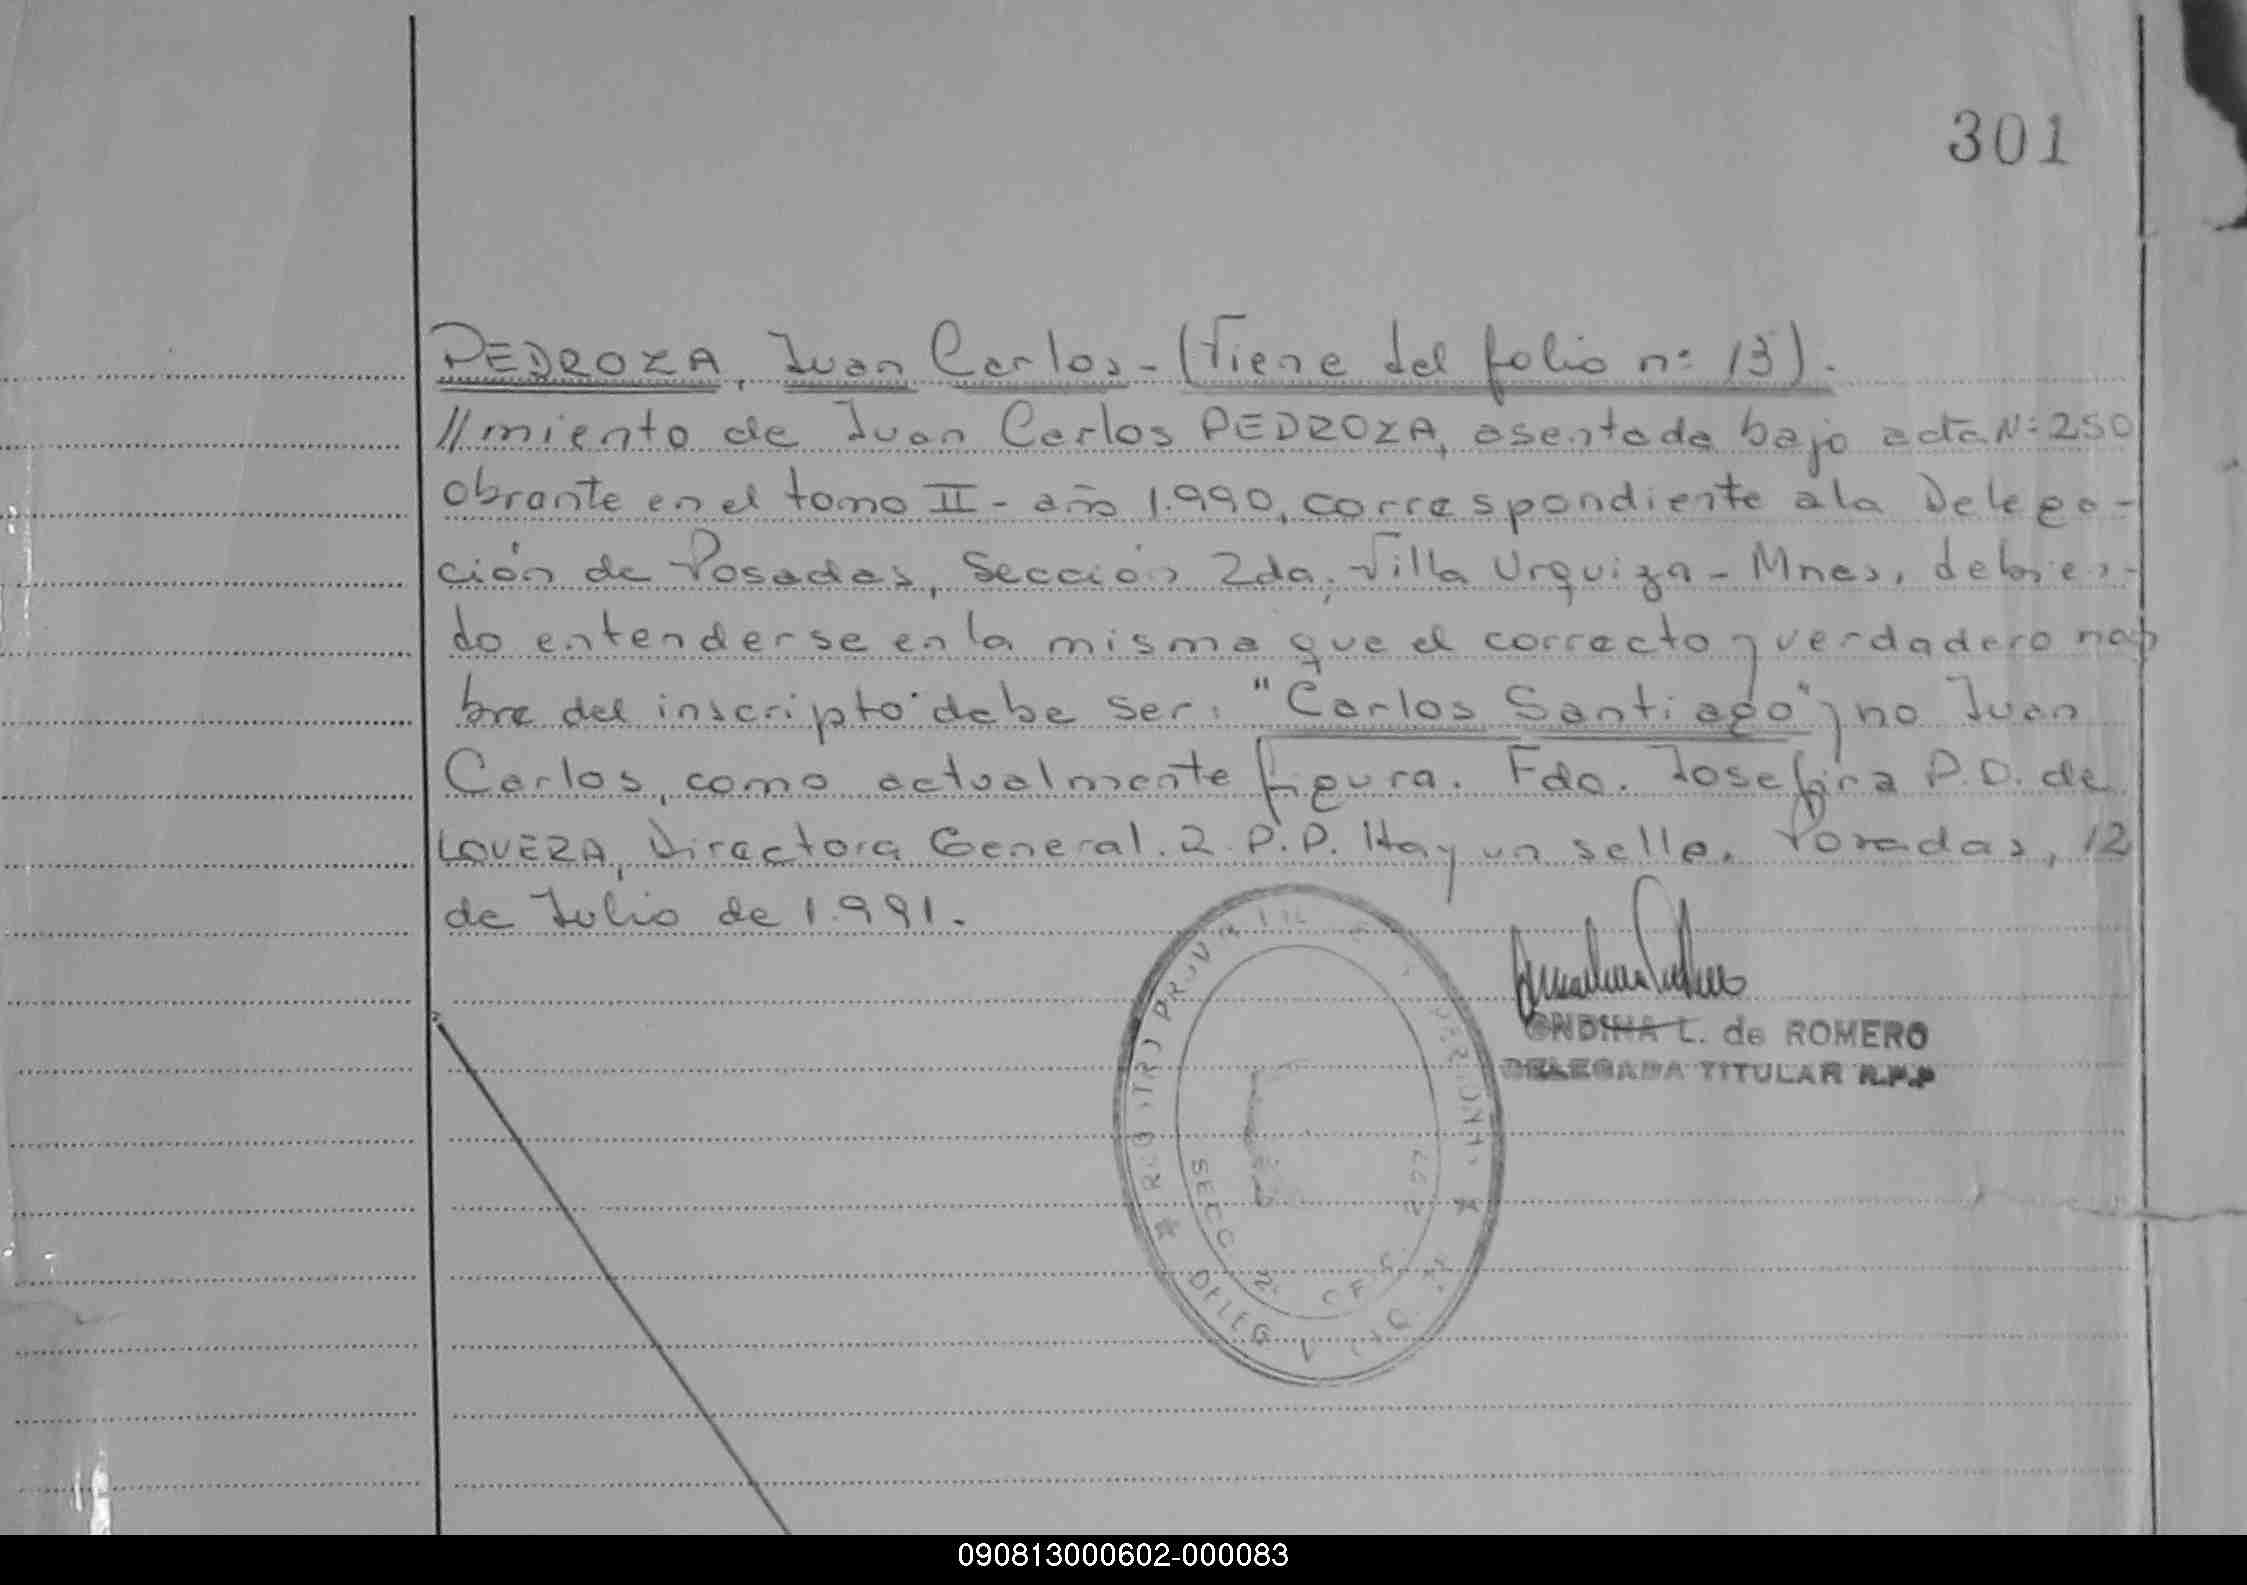 301
PEDROZA, Juan Carlos - (Viene del folio nº 13).
//miento de Juan Carlos PEDROZA, asentada bajo acta Nº 250
obrante en el tomo II - año 1.990, correspondiente a la Delega-
ción de Posadas, Sección 2da, Villa Urquiza - Mnes, debien-
do entenderse en la misma que el correcto y verdadero nom
bre del inscripto debe ser: "Carlos Santiago" y no Juan
Carlos, como actualmente figura. Fdo. Josefina P.D. de
LOVERA, Directora General. R.P.P. Hay un sello. Posadas, 12
de Julio de 1.991.
ONDINA L. de ROMERO
DELEGADA TITULAR R.P.P
SECC 2ª
DELEG
090813000602-000083